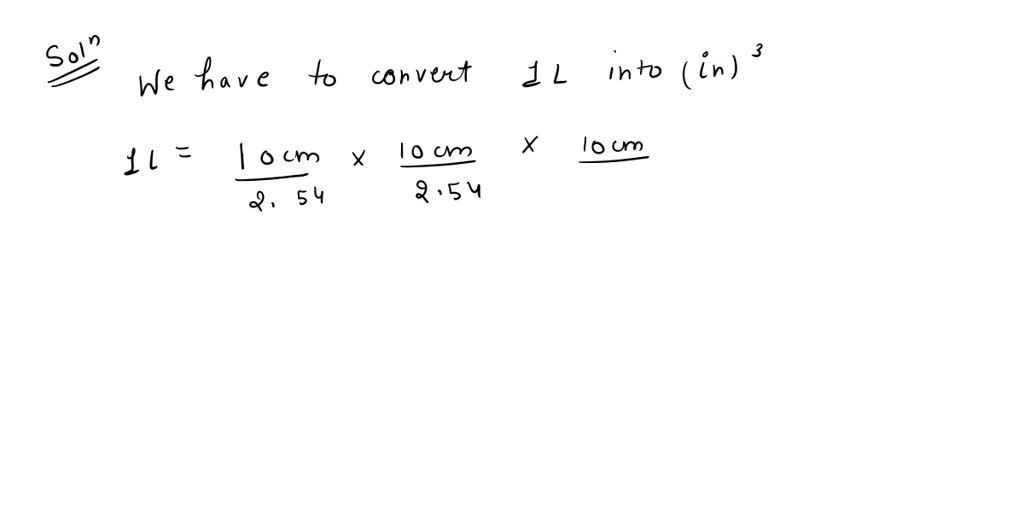 Solⁿ
We have to convert 1L into (in)³
1L = 10cm/2.54 × 10cm/2.54 × 10cm